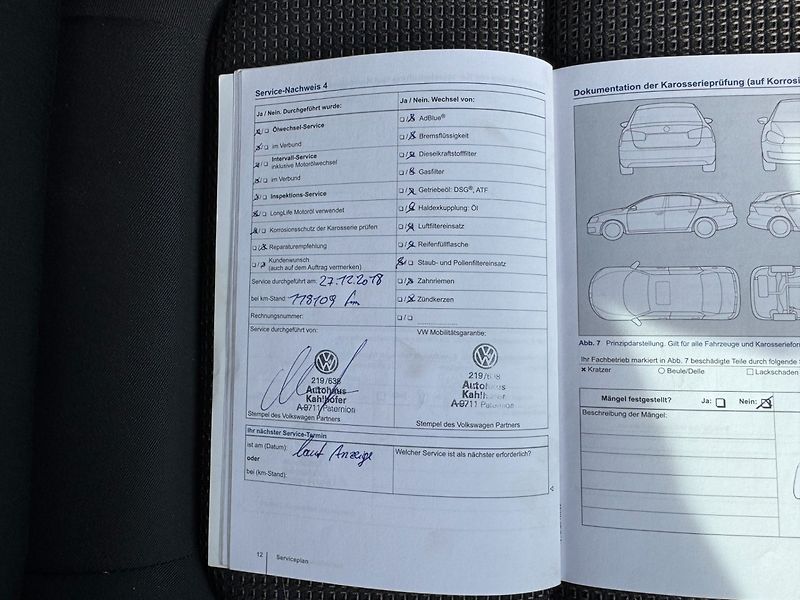 Service-Nachweis 4
Ja / Nein. Durchgeführt wurde:
Ölwechsel-Service
im Verbund
Intervall-Service
inklusive Motorölwechsel
im Verbund
Inspektions-Service
LongLife Motoröl verwendet
Korrosionsschutz der Karosserie prüfen
Reparaturempfehlung
Kundenwunsch
(auch auf dem Auftrag vermerken)
Service durchgeführt am: 27.12.2018
bei km-Stand: 118109 km
Rechnungsnummer:
Service durchgeführt von:
219/638
Autohaus
Kahlhofer
A-9711 Paternion
Stempel des Volkswagen Partners
Ja / Nein. Wechsel von:
AdBlue®
Bremsflüssigkeit
Dieselkraftstofffilter
Gasfilter
Getriebeöl: DSG®, ATF
Haldexkupplung: Öl
Luftfiltereinsatz
Reifenfüllflasche
Staub- und Pollenfiltereinsatz
Zahnriemen
Zündkerzen
VW Mobilitätsgarantie:
219/638
Autohaus
Kahlhofer
A-9711 Paternion
Stempel des Volkswagen Partners
Ihr nächster Service-Termin
ist am (Datum): laut Anzeige
oder
bei (km-Stand):
Welcher Service ist als nächster erforderlich?
12 Serviceplan
Dokumentation der Karosserieprüfung (auf Korrosi
Abb. 7 Prinzipdarstellung. Gilt für alle Fahrzeuge und Karosseriefor
Ihr Fachbetrieb markiert in Abb. 7 beschädigte Teile durch folgende S
Kratzer Beule/Delle Lackschaden
Mängel festgestellt? Ja: Nein:
Beschreibung der Mängel: